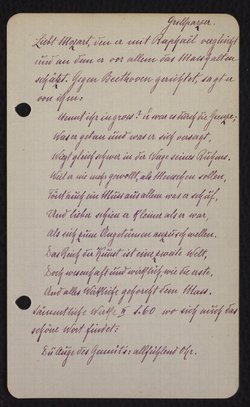 Grillparzer.
Liebt Mozart, den er mit Raphael vergleicht
und an dem er vor allem das Masshalten
schätzt. Gegen Beethoven gerichtet, sagt er
von ihm:
Nennt ihr ihn gross? er war es durch die Grenze.
Was er getan und was er sich versagt,
Wiegt gleich schwer in der Wage seines Ruhms.
Weil er nie mehr gewollt, als Menschen sollen,
Tönt auch ein Muss aus allem was er schuf,
Und lieber schien er kleiner als er war,
Als sich zum Ungetümen anzuschwellen.
Das Reich der Kunst ist eine zweite Welt,
Doch wesenhaft und wirklich wie die erste,
Und alles Wirkliche gehorcht dem Mass.
Sämmtliche Werke II S. 60 wo sich auch das
schöne Wort findet:
Du Auge des Gemüts: allfühlend Ohr.